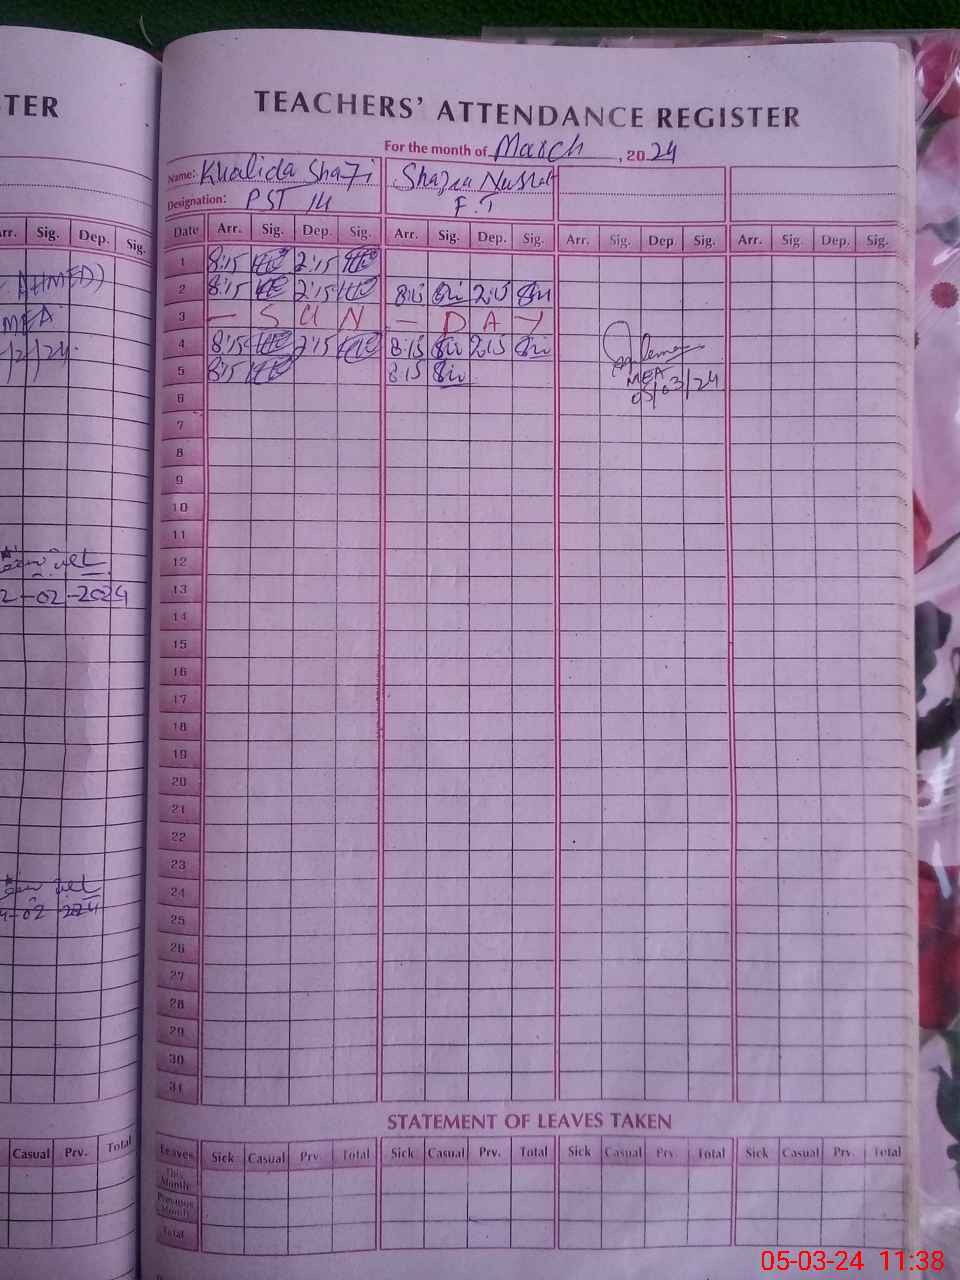 TER
TEACHERS' ATTENDANCE REGISTER
For the month of March, 2024
Name: Khalida Shafi Shazia Nusrat
Designation: PST 14 F.T
Arr. Sig. Dep. Sig.
Date Arr. Sig. Dep. Sig. Arr. Sig. Dep. Sig. Arr. Sig. Dep Sig. Arr. Sig. Dep. Sig.
AHMED)
MEA
1 8:15 2:15
2 8:15 2:15 8:15 2:15
3 - S U N - D A Y
4 8:15 2:15 8:15 2:15
5 8:15 8:15
MEA
05/03/24
6
7
8
9
10
11
12
13
2-02-2024
14
15
16
17
18
19
20
21
22
23
24
25
26
27
28
29
30
31
STATEMENT OF LEAVES TAKEN
Casual Prv. Total
Leaves Sick Casual Prv. Total Sick Casual Prv. Total Sick Casual Prv. Total Sick Casual Prv. Total
This Month
Previous Month
Total
05-03-24 11:38